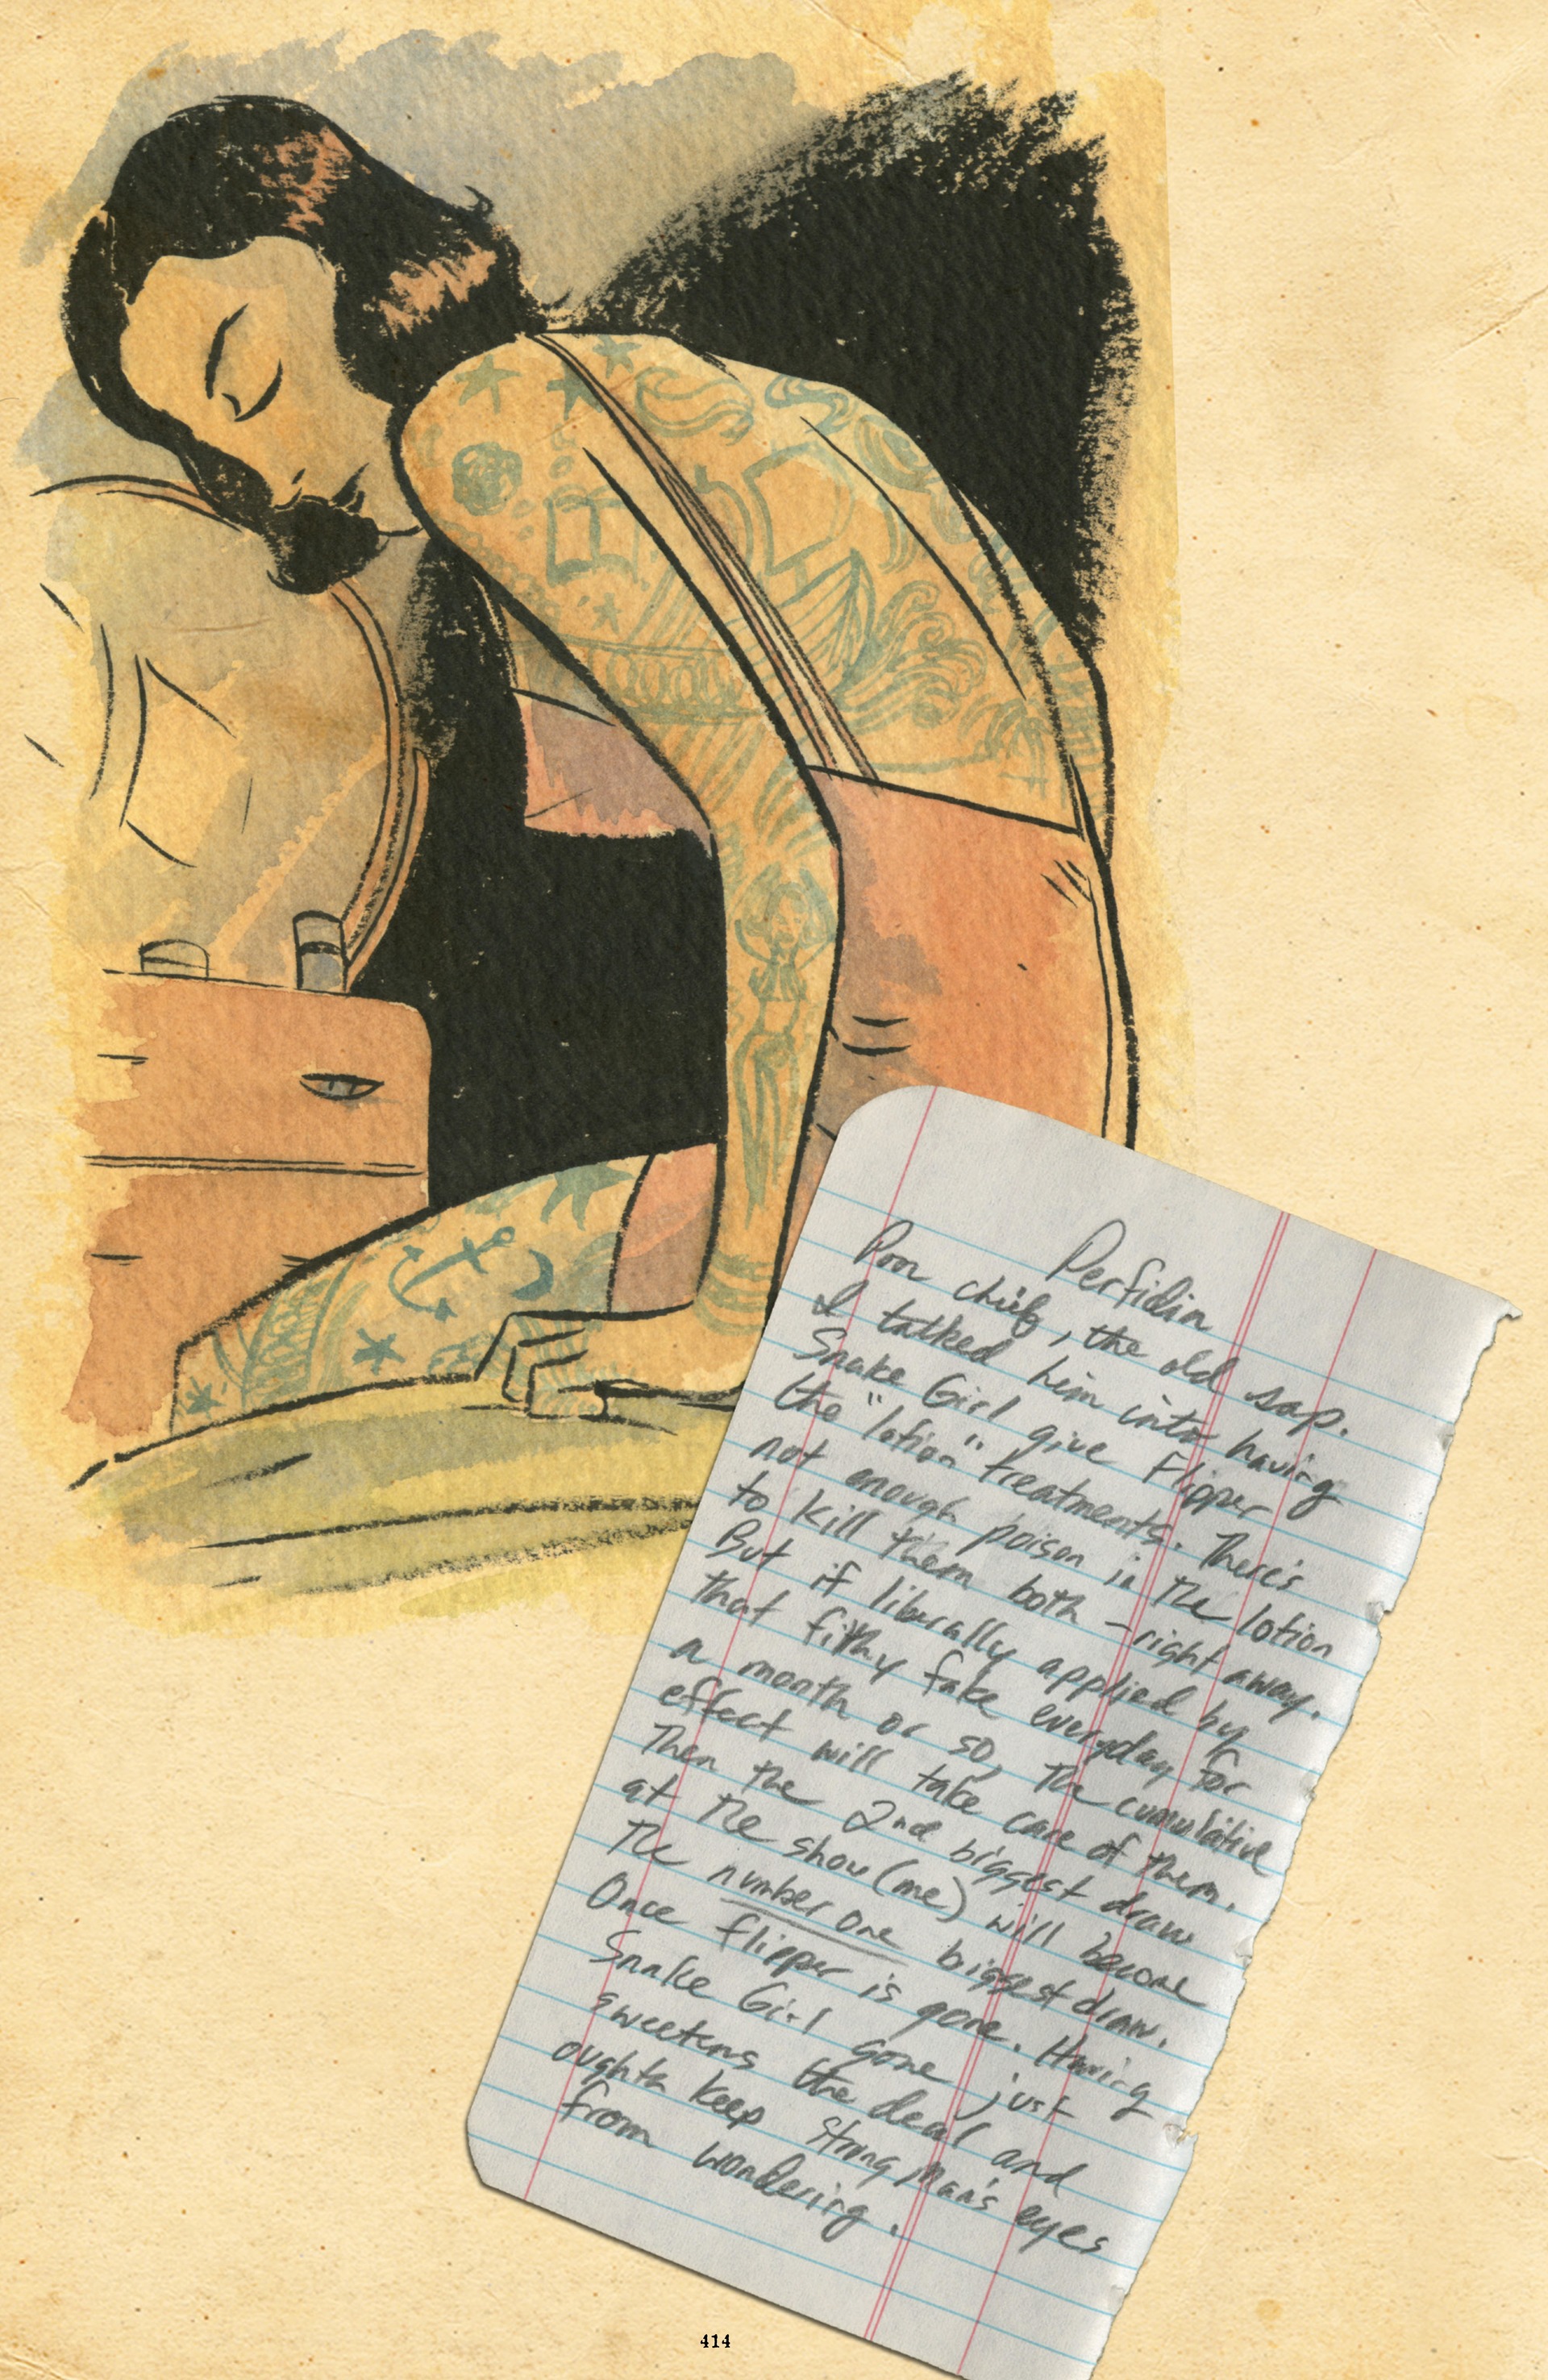 Perfidia
Poor chübz, the old sap.
I talked him into having
Snake Girl give Flipper
the "lotion" treatments. There's
not enough poison in the lotion
to kill them both – right away.
But if liberally applied by
that filthy fake everyday for
a month or so, the cumulative
effect will take care of them.
Then the 2nd biggest draw
at the show (me) will become
the number one biggest draw.
Once flipper is gone. Having
Snake Girl gone just
sweetens the deal and
oughta keep Strong Man's eyes
from wondering.
414